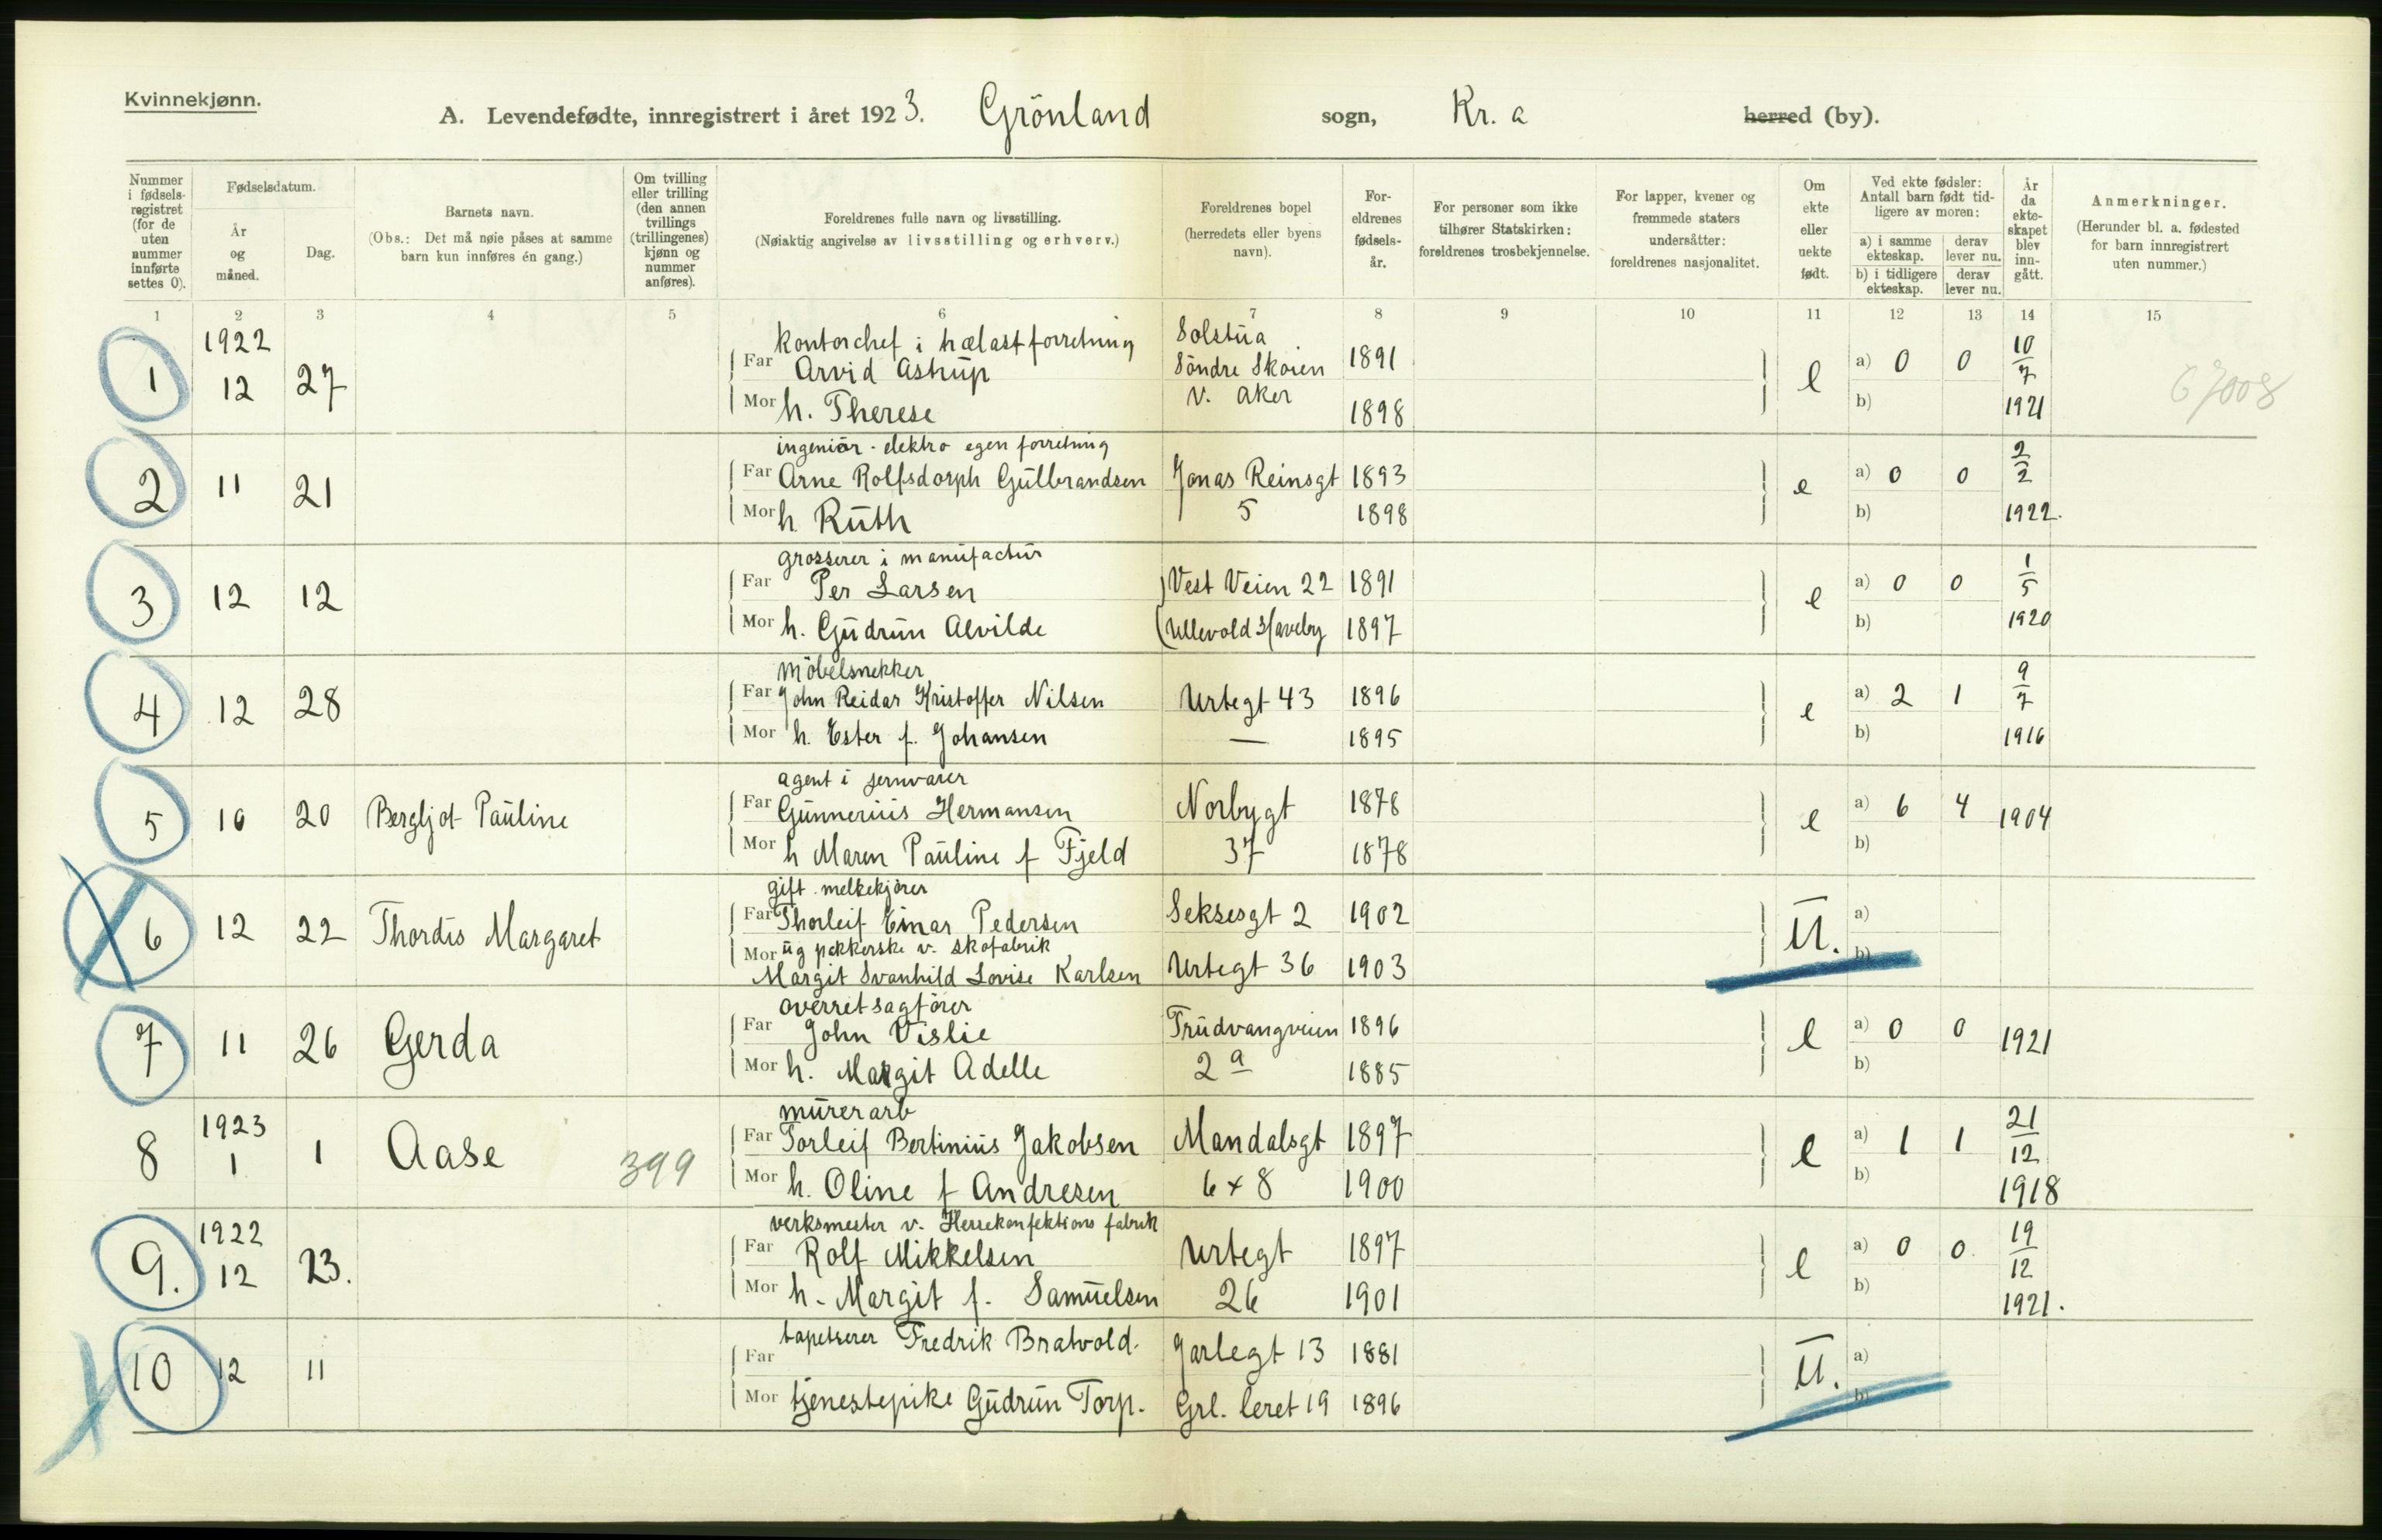 Kvinnekjønn.
A. Levendefødte, innregistrert i året 1923. Grönland sogn, Kr. a herred (by).
Nummer i fødsels-registret (for de uten nummer innførte settes 0).
Fødselsdatum.
År og måned.
Dag.
Barnets navn.
(Obs.: Det må nøie påses at samme barn kun innføres én gang.)
Om tvilling eller trilling (den annen tvillings (trillingenes) kjønn og nummer anføres).
Foreldrenes fulle navn og livsstilling.
(Nøiaktig angivelse av livsstilling og erhverv.)
Foreldrenes bopel (herredets eller byens navn).
For-eldrenes fødsels-år.
For personer som ikke tilhører Statskirken: foreldrenes trosbekjennelse.
For lapper, kvener og fremmede staters undersåtter: foreldrenes nasjonalitet.
Om ekte eller uekte født.
Ved ekte fødsler: Antall barn født tid-ligere av moren:
a) i samme ekteskap. derav lever nu.
b) i tidligere ekteskap. derav lever nu.
År da ekte-skapet blev inn-gått.
Anmerkninger.
(Herunder bl. a. fødested for barn innregistrert uten nummer.)
1 2 3 4 5 6 7 8 9 10 11 12 13 14 15
1922 kontorchef i trælastforretning Solstua 10
1 12 27 Far Arvid Astrup Söndre Skøien 1891 e a) 0 0 7
Mor h. Therese v. Aker 1898 b) 1921
67008
ingeniör - elektro egen forretning 2
2 11 21 Far Arne Rolfsdorph Gulbrandsen Jonas Reinsgt 1893 e a) 0 0 2
Mor h. Ruth 5 1898 b) 1922.
grosserer i manufactur 1
3 12 12 Far Per Larsen Vest Veien 22 1891 e a) 0 0 5
Mor h. Gudrun Alvilde (Ullevold Haveby 1897 b) 1920
Möbelsnekker 9
4 12 28 Far John Reidar Kristoffer Nilsen Urtegt 43 1896 e a) 2 1 7
Mor h. Ester f. Johansen — 1895 b) 1916
agent i jernvarer
5 10 20 Bergljot Pauline Far Gunnerius Hermansen Norbygt 1878 e a) 6 4 1904
Mor h Maren Pauline f Fjeld 37 1878 b)
gift. melkekjører
6 12 22 Thordis Margaret Far Thorleif Einar Pedersen Seksesgt 2 1902 U. a)
Mor ug pakkerske v. skofabrik
Margit Svanhild Lovise Karlsen Urtegt 36 1903 b)
overretsagfører
7 11 26 Gerda Far John Vislie Trudvangveien 1896 e a) 0 0 1921
Mor h. Margit Adelle 2 a 1885 b)
1923 murerarb 21
8 1 1 Aase 399 Far Torleif Bertinius Jakobsen Mandalsgt 1897 e a) 1 1 12
Mor h. Oline f Andresen 6 + 8 1900 b) 1918
1922 verksmester v. Herrekonfektions fabrik 19
9. 12 23. Far Rolf Mikkelsen Urtegt 1897 e a) 0 0 12
Mor h. Margit f. Samuelsen 26 1901 b) 1921.
10 12 11 Far tapetserer Fredrik Bratvold. Jarlegt 13 1881 U. a)
Mor tjenestepike Gudrun Torp. Grl. leret 19 1896 b)